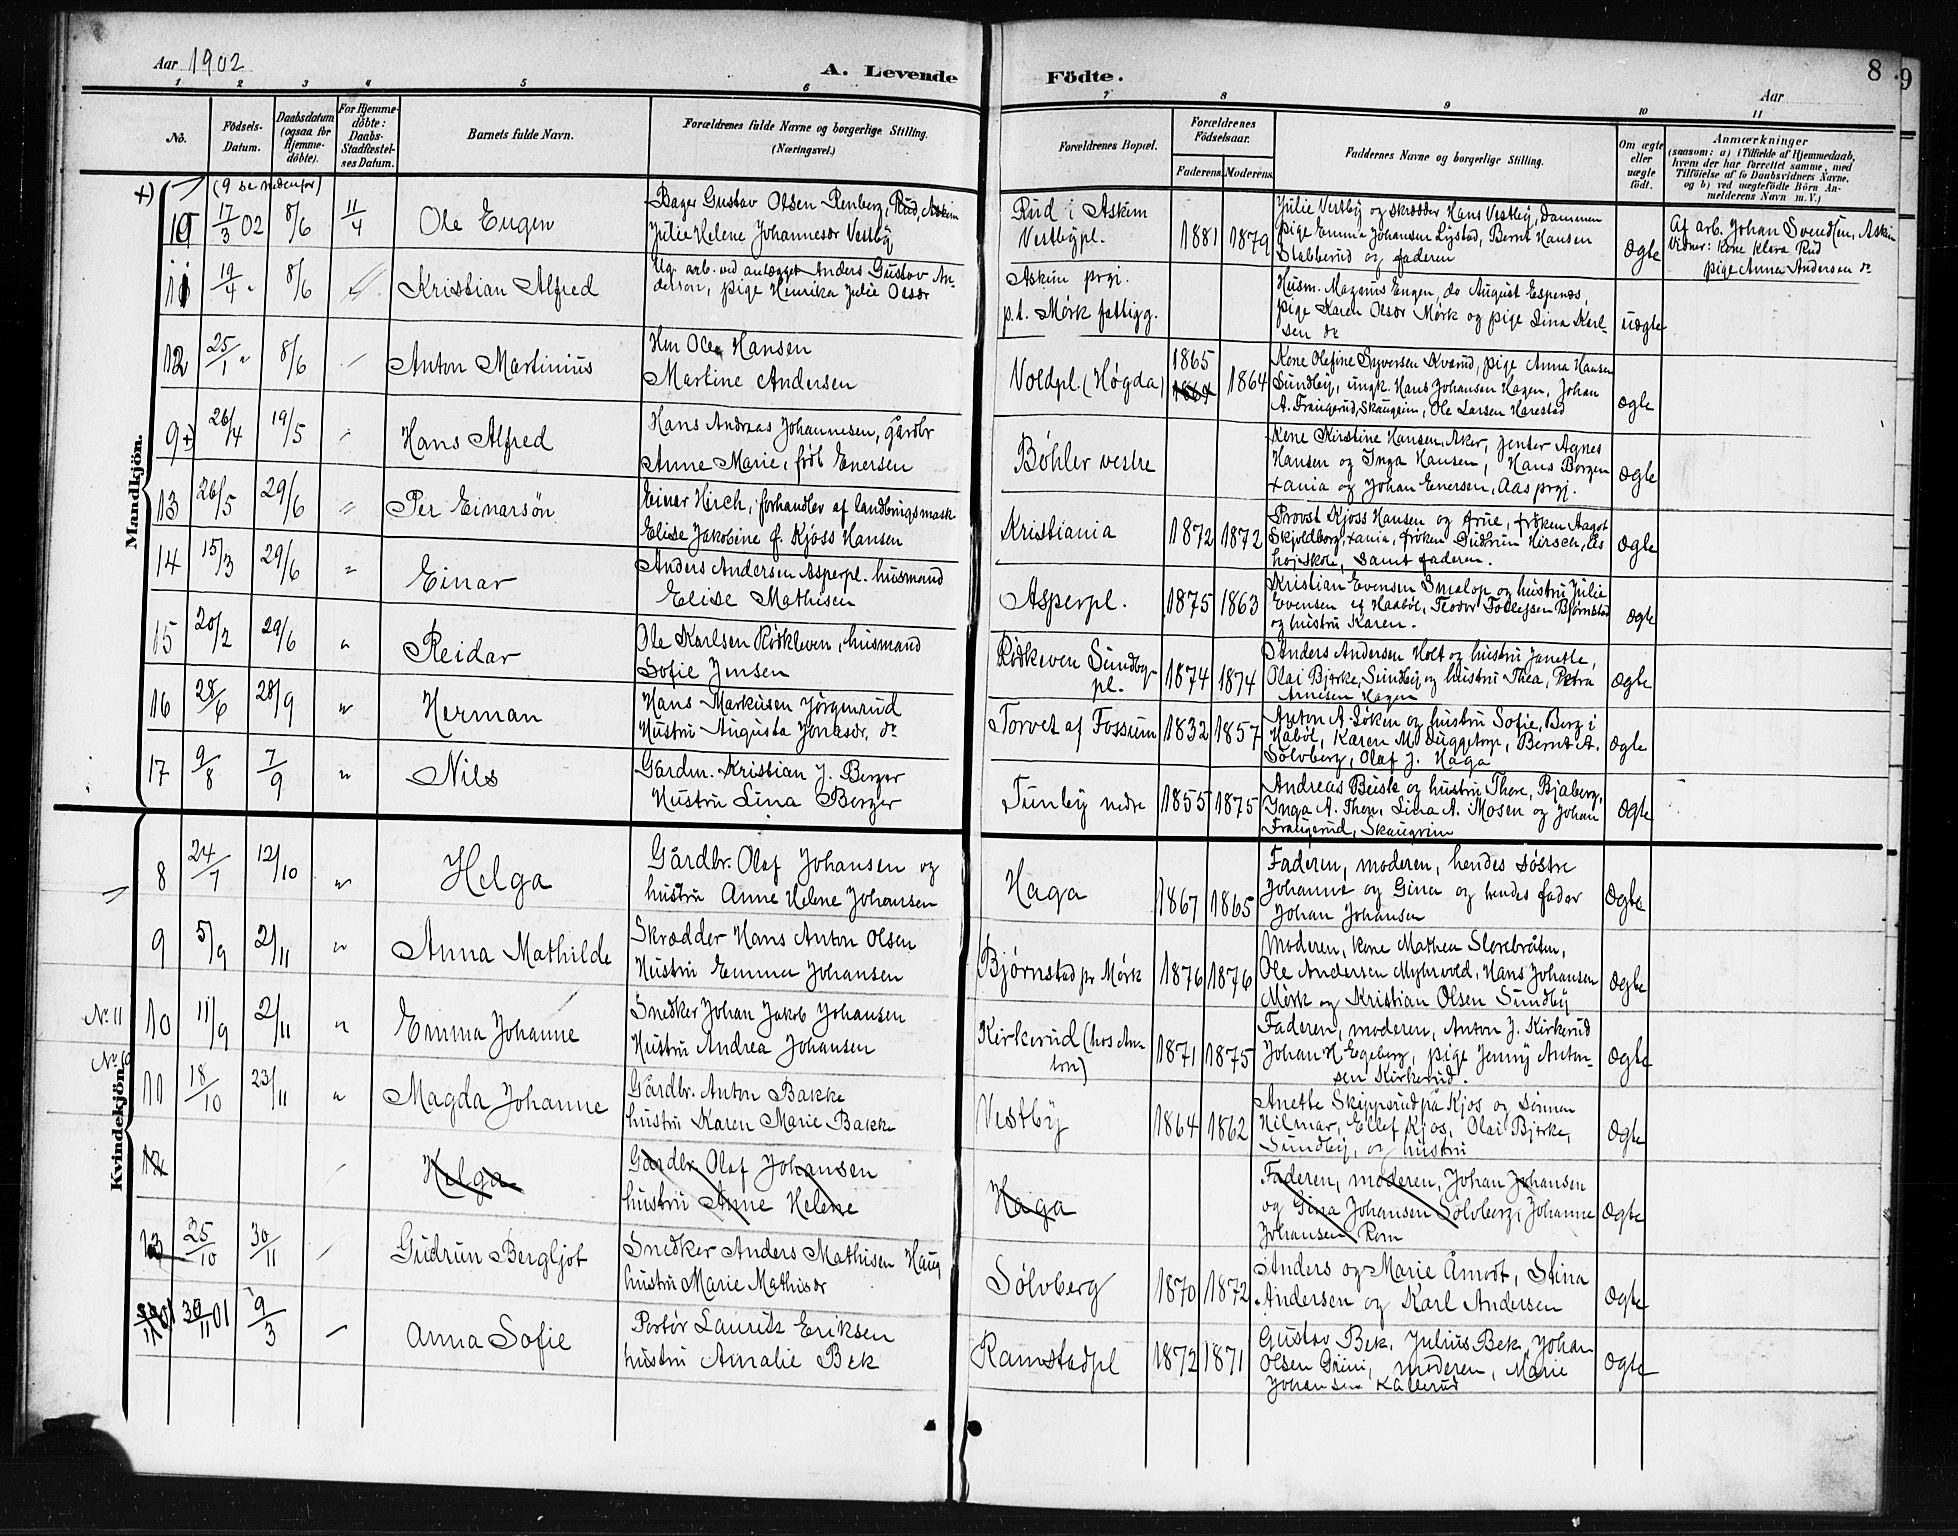 Aar 1902
A. Levende Födte.
8
9
Aar
1 2 3 4 5 6 7 8 9 10 11
No.
Födsels-
Datum.
Daabsdatum
(ogsaa for
Hjemme-
döbte).
For Hjemme-
döbte:
Daabs-
Stadfæstel-
ses Datum.
Barnets fulde Navn.
Forældrenes fulde Navne og borgerlige Stilling.
(Næringsvei.)
Forældrenes Bopæl.
Forældrenes
Födselsaar.
Faderens. Moderens.
Faddernes Navne og borgerlige Stilling.
Om ægte
eller
uægte
födt.
Anmærkninger
(saasom: a) i Tilfælde af Hjemmedaab,
hvem der har forrettet samme, med
Tilföielse af to Daabsvidners Navne.
og b) ved uægtefödte Börn An-
melderens Navn m. V.)
Mandkjön.
+) (9 se nedenfor)
10 17/3 02 8/6 11/4 Ole Eugen
Bager Gustav Olsen Renberg, Rud, Askim
Julie Helene Johannesdr Vestby
Rud i Askim
Vestbypl.
1881 1879
Julie Vestby og skrædder Hans Vestby, Dammen
pige Emma Johansen Lystad, Bernt Hansen
Stabberud og faderen
ægte
Af arb. Johan Svendsen, Askim
vidner: kone Klara Rud
pige Anna Andersen do
11 19/4 " 8/6 Kristian Alfred
Ug. arb. ved anlægget Anders Gustav An-
derson, pige Henrika Julie Olsdr
Askim prgj.
p.t. Mørk fattigg.
Husm. Magnus Eugen, do August Espenæs,
pige Karen Olsdr Mørk og pige Lina Karl-
sen do
uægte
12 25/1 " 8/6 Anton Martinius
Hm Ole Hansen
Martine Andersen
Voldpl (Høgda)
1865 1864
Kone Olefine Syversen Kvarud, pige Anna Hansen
Sundby, ungk. Hans Johansen Hagen, Johan
A. Fraugerud, Skaugeim, Ole Larsen Harestad
ægte
9+) 26/4 19/5 Hans Alfred
Hans Andreas Johannesen, Gårdbr
Anne Marie, født Enersen
Bøhler vestre
Kone Kirstine Hansen, Aker, jenter Agnes
Hansen og Inga Hansen, Hans Borgen
xania og Johan Enersen, Aas prgj.
ægte
13 26/5 29/6 " Per Einarsön
Einar Hirch, forhandler af landbrugsmask
Elise Jakobine f. Kjøss Hansen
Kristiania
1872 1872
Provst Kjøss Hansen og frue, frøken Aagot
Skjoldborg, xania, frøken Gudrun Hirsch, Ås
højskole, samt faderen.
ægte
14 15/3 29/6 " Einar
Anders Andersen Asperpl. husmand
Elise Mathisen
Asperpl.
1875 1863
Kristian Evensen Smalop og hustru Julie
Evensen af Haabøl, Teodor Tollefsen Bjørnstad
og hustru Karen.
ægte
15 20/2 29/6 " Reidar
Ole Karlsen Rødkleven, husmand
Sofie Jensen
Rødkeven Sundby-
pl.
1874 1874
Anders Andersen Holt og hustru Janette,
Olai Bjerke, Sundby og hustru Thea, Petra
Arnesen Hagen
ægte
16 28/6 28/9 " Herman
Hans Markusen Jørgenrud
Hustru Augusta Jonasdr, do
Torvet af Fossum
1832 1857
Anton A. Løken og hustru Sofie, Berg i
Håbøl, Karen M. Duggetorp, Bernt A.
Sølvberg, Olaf J. Haga
ægte
17 9/8 7/9 " Nils
Gardm. Kristian J. Berger
Hustru Lina Berger
Tunby nedre
1855 1875
Andreas Beisk og hustru Thore, Bjaberg,
Inga A. Thon, Lina A. Mosen og Johan
Fraugerud, Skaugeim
ægte
Kvindekjön.
8 24/7 12/10 " Helga
Gårdbr. Olaf Johansen og
hustru Anne Helene Johansen
Haga
1867 1865
Faderen, moderen, hendes søstre
Johanne og Gina og hendes fader
Johan Johansen
ægte
9 5/9 2/11 " Anna Mathilde
Skrædder Hans Anton Olsen
Hustru Emma Johansen
Bjørnstad pr Mørk
1876 1876
Moderen, kone Mathea Slorebråten,
Ole Andersen Myhrvold, Hans Johansen
Mørk og Kristian Olsen Sundby
ægte
No 11
10 11/9 2/11 " Emma Johanne
Snedker Johan Jakob Johansen
Hustru Andrea Johansen
Kirkerud (hos An-
ton)
1871 1875
Faderen, moderen, Anton J. Kirkerud
Johan H. Egeberg, pige Jenny Anton-
sen Kirkerud.
ægte
No 10
11 18/10 23/11 " Magda Johanne
Gårdbr. Anton Bakke
hustru Karen Marie Bakke
Vestby
1864 1862
Anette Skippsrud på Kjos og sønnen
Hilmar, Ellef Kjos, Olai Bjerke,
Sundby, og hustru
ægte
12 Helga
Gårdbr. Olaf Johansen
hustru Anne Helene
Haga
Faderen, moderen, Johan Johansen
og Gina Johansen Sølvberg, Johanne
Johansen Rom
ægte
13 25/10 30/11 Gudrun Bergljot
Snedker Anders Mathisen Haug
hustru Marie Mathisdr
Sølvberg
1870 1872
Anders og Marie Åmodt, Stina
Andersen og Karl Andersen
ægte
30/11 01 9/3 Anna Sofie
Portør Laurits Eriksen
hustru Amalie Bek
Ramstadpl
1872 1871
Gustav Bek, Julius Bek, Johan
Olsen Grini, moderen, Marie
Johansen Kallerud
ægte